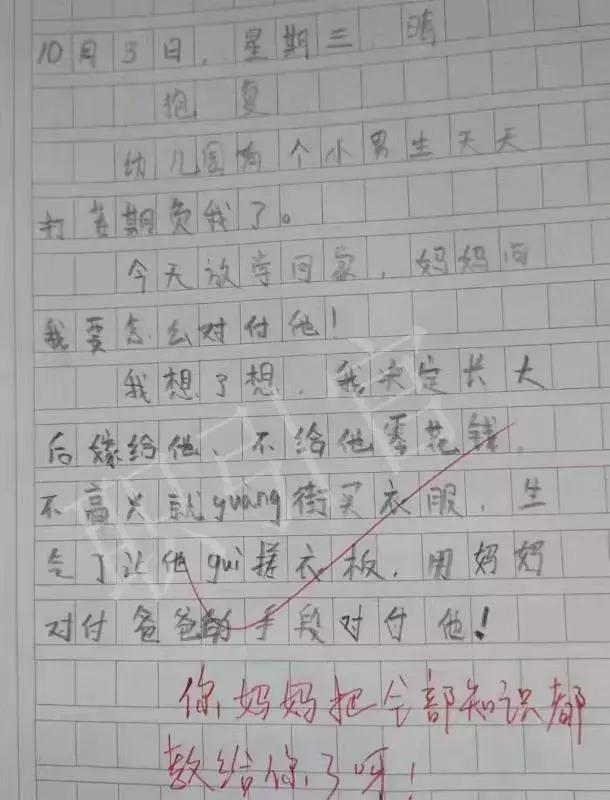 10月3日，星期三 晴
抱复
幼儿园有个小男生天天
打者期负我了。
今天放学回家，妈妈问
我要怎么对付他！
我想了想，我决定长大
后嫁给他、不给他零花钱，
不高兴就guàng街买衣服，生
气了让他guì搓衣板，用妈妈
对付爸爸的手段对付他！
你妈妈把全部知识都
教给你了呀！